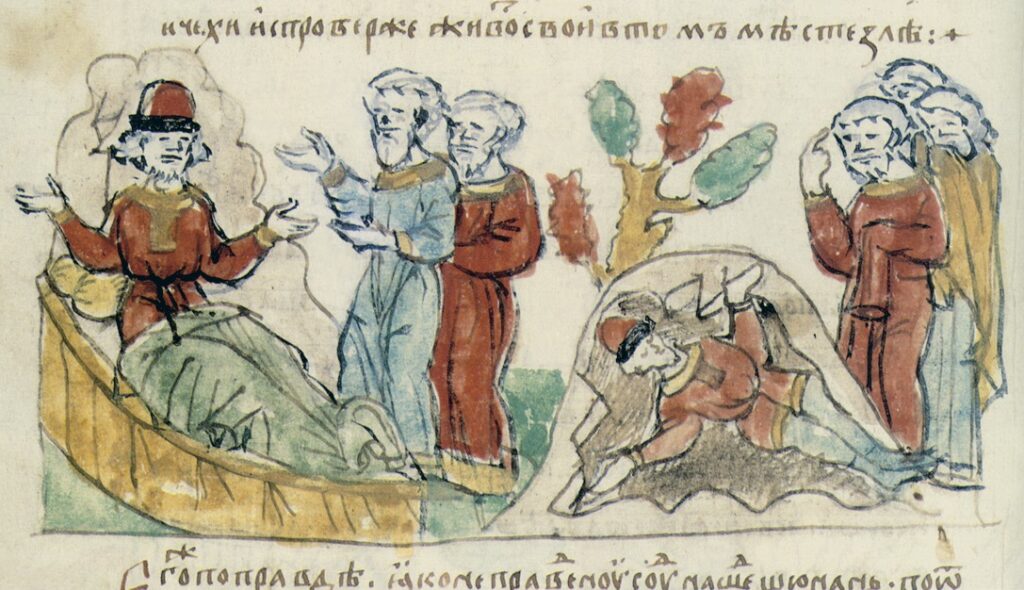 и чехи испроверже живⷪ҇ свои в томъ мѣсте злѣ : +
Егоⷤ по правдѣ . ꙗко неправеⷣноу соуⷣ нашеⷣшю на нь . по ѿ